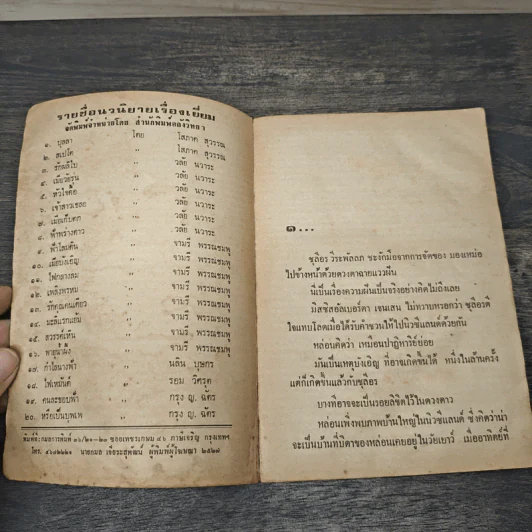 รายชื่อนวนิยายเรื่องเยี่ยม
จัดพิมพ์จำหน่ายโดย สำนักพิมพ์คลังวิทยา
๑. บุลลา โดย โสภาค สุวรรณ
๒. สเปโต " โสภาค สุวรรณ
๓. รักแล้วไง " วลัย นวาระ
๔. เมื่อวัยรุ่น " วลัย นวาระ
๕. หัวใจดื้อ " วลัย นวาระ
๖. เจ้าสาวเชลย " วลัย นวาระ
๗. " วลัย นวาระ
๘. ฟ้าพร่างดาว " วลัย นวาระ
๙. ฟ้าใสฝนดิน " จามรี พรรณชมพู
๑๐. เมื่อบังเอิญ " จามรี พรรณชมพู
๑๑. ไฟกลางลม " จามรี พรรณชมพู
๑๒. เพลิงพรหม " จามรี พรรณชมพู
๑๓. รักคุณคนเดียว " จามรี พรรณชมพู
๑๔. มะลิแรกแย้ม " จามรี พรรณชมพู
๑๕. สวรรค์เห็น " จามรี พรรณชมพู
๑๖. พายุน้ำผึ้ง " จามรี พรรณชมพู
๑๗. กำไลนางฟ้า " นลิน บุษกร
๑๘. ไฟเหมันต์ " รอม วิศรุต
๑๙. คนละขอบฟ้า " กรุง ญ. ฉัตร
๒๐. หรือเป็นบุพเพ " กรุง ญ. ฉัตร
กรุงเทพฯ
โทร. ๒๕๒๗
๑...
ชุลีอร วีระพัลลภ ชะงักมือจากการจัดของ มองเหม่อ
ไปข้างหน้าด้วยดวงตาฉายแววฝัน
นี่เป็นเรื่องความฝันเป็นจริงอย่างคิดไม่ถึงเลย
มิสซิสอัลเบอร์ตา เจนเสน ไม่ทราบหรอกว่า ชุลีอรดี
ใจแทบโลดเมื่อได้รับคำชวนให้ไปนิวซีแลนด์ด้วยกัน
หล่อนคิดว่า เหมือนปาฏิหาริย์ย่อย
มันเป็นเหตุบังเอิญ ที่อาจเกิดขึ้นได้ หนึ่งในล้านครั้ง
แต่ก็เกิดขึ้นแล้วกับชุลีอร
บางทีอาจจะเป็นรอยลิขิตไว้ในดวงดาว
หล่อนเพิ่งพบภาพบ้านใหญ่ในนิวซีแลนด์ ซึ่งคิดว่าน่า
จะเป็นบ้านที่บิดาของหล่อนเคยอยู่ในวัยเยาว์ เมื่ออาทิตย์ที่